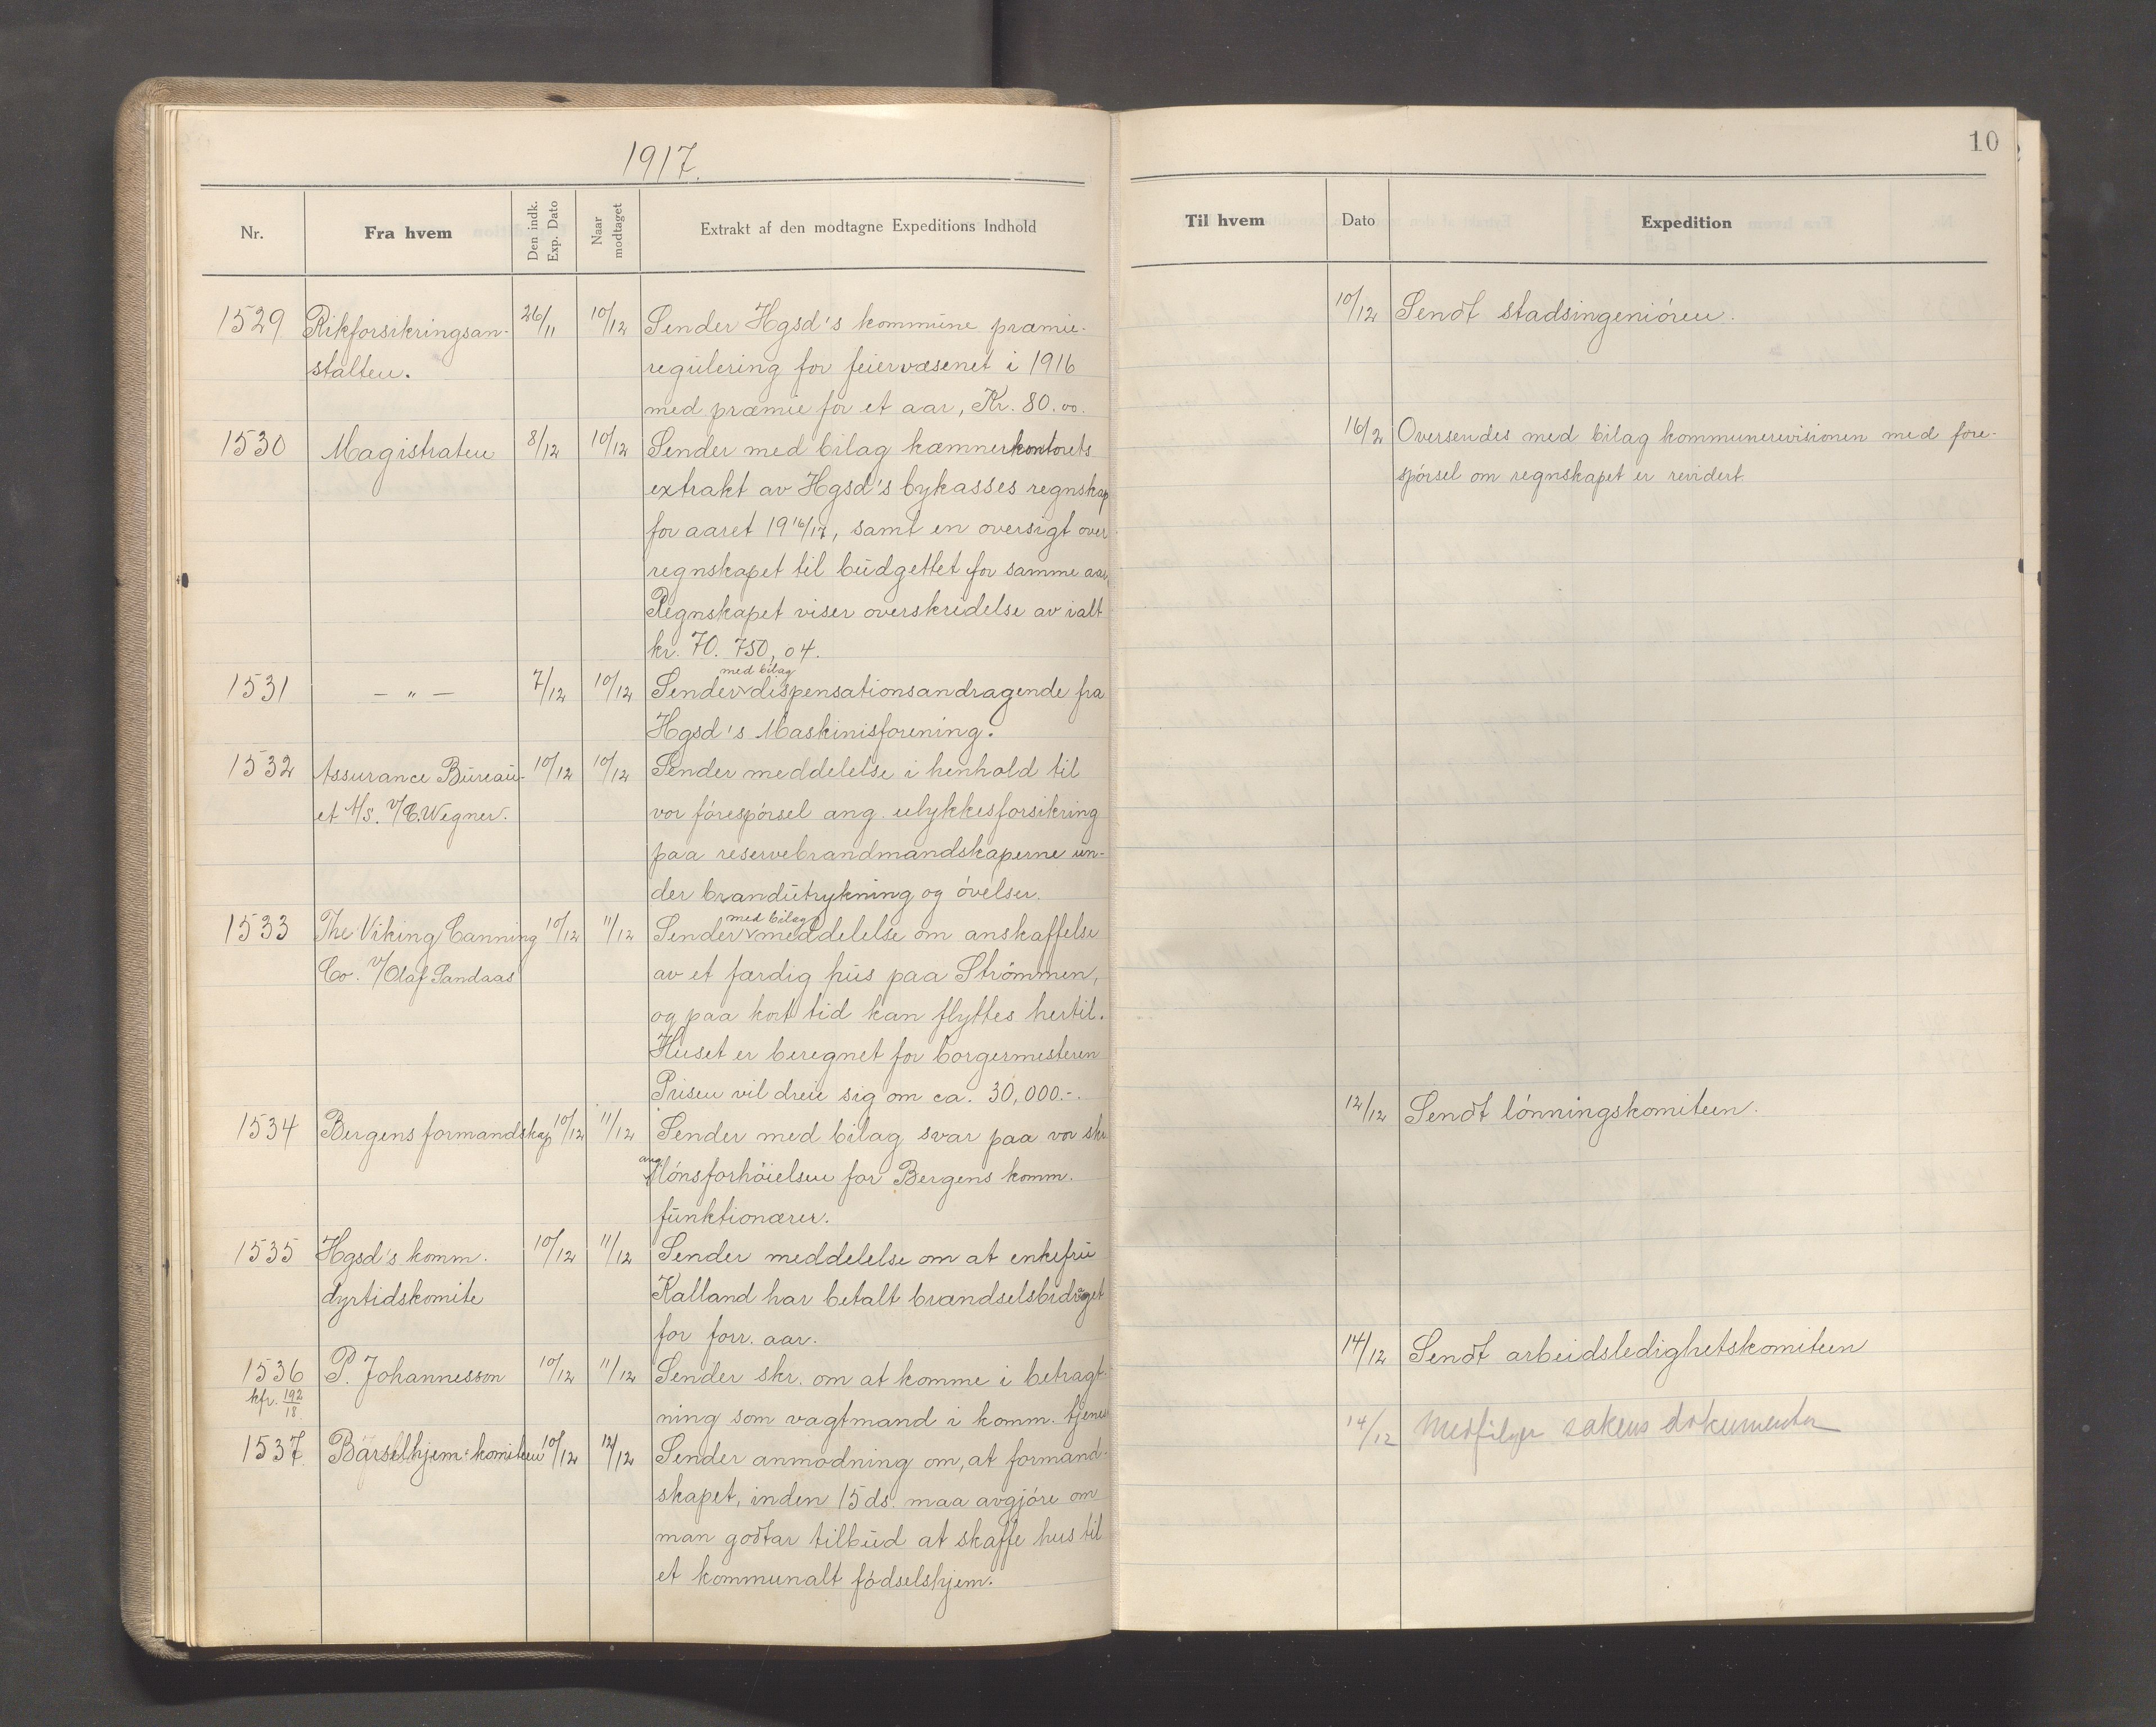 1917.
Nr.
Fra hvem
Den indk. Exp. Dato
Naar modtaget
Extrakt af den modtagne Expeditions Indhold
1529 Rikforsikringsan- 26/11 10/12 Sender Hgsd's kommune præmie-
stalten. regulering for feiervæsenet i 1916
med præmie for et aar, Kr. 80.00.
1530 Magistraten 8/12 10/12 Sender med bilag kæmnerkontorets
extrakt av Hgsd's bykasses regnskap
for aaret 1916/17, samt en oversigt over
regnskapet til budgettet for samme aar.
Regnskapet viser overskridelse av ialt
kr. 70.750,04.
med bilag
1531 — " — 7/12 10/12 Sender dispensationsandragende fra
Hgsd's Maskinisforening.
1532 Assurance Bureau- 10/12 10/12 Sender meddelelse i henhold til
et A/S. v/C. Wegner. vor förespörsel ang. ulykkesforsikring
paa reservebrandmandskaperne un-
der brandutrykning og övelser.
med bilag
1533 The Viking Canning 10/12 11/12 Sender meddelelse om anskaffelse
Co. v/Olaf Sandaas av et færdig hus paa Strömmen,
og paa kort tid kan flyttes hertil.
Huset er beregnet for borgermesteren
Prisen vil dreie sig om ca. 30,000.-.
1534 Bergens formandskap 10/12 11/12 Sender med bilag svar paa vor skr
ang. lönsforhöielsen for Bergens komm.
funktionærer.
1535 Hgsd's komm. 10/12 11/12 Sender meddelelse om at enkefru
dyrtidskomite Kalland har betalt brændselsbidraget
for forr. aar.
1536 P. Johannesson 10/12 11/12 Sender skr. om at komme i betragt-
kfr. 192/18 ning som vagtmand i komm. tjenes
1537 Barselhjem-komiteen 10/12 12/12 Sender anmodning om, at formand-
skapet, inden 15 ds. maa avgjöre om
man godtar tilbud at skaffe hus til
et kommunalt födselshjem.
10
Til hvem
Dato
Expedition
10/12 Sendt stadsingeniören.
16/2 Oversendes med bilag kommunerevisionen med fore-
spörsel om regnskapet er revidert.
12/12 Sendt lönningskomiteen.
14/12 Sendt arbeidsledighetskomiteen
14/12 Medfölger sakens dokumenter